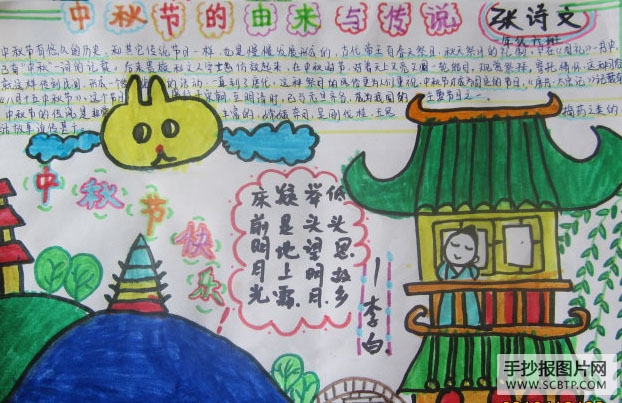 中秋节的由来与传说
张诗文
中秋节有悠久的历史,和其它传统节日一样,也是慢慢发展形成的,古代帝王有春天祭日,秋天祭月的礼制,早在《周礼》一书中,
已有“中秋”一词的记载。后来贵族和文人学士也仿效起来,在中秋时节,对着天上又亮又圆一轮皓月,观赏祭拜,寄托情怀,这种习俗
就这样传到民间,形成一个的活动,一直到了唐代,这种祭月的风俗更为人们重视,中秋节才成为固定的节日,《唐书·太宗记》记载有
“八月十五中秋节”,这个节至明清时,已与元旦齐名,成为我国的主要节日之一。
中秋节的传说是丰富的,嫦娥奔月,吴刚伐桂,玉兔捣药之类的
中秋节快乐!
床前明月光
疑是地上霜.
举头望明月.
低头思故乡
一李白.
手抄报图片网
WWW.SCBTP.COM